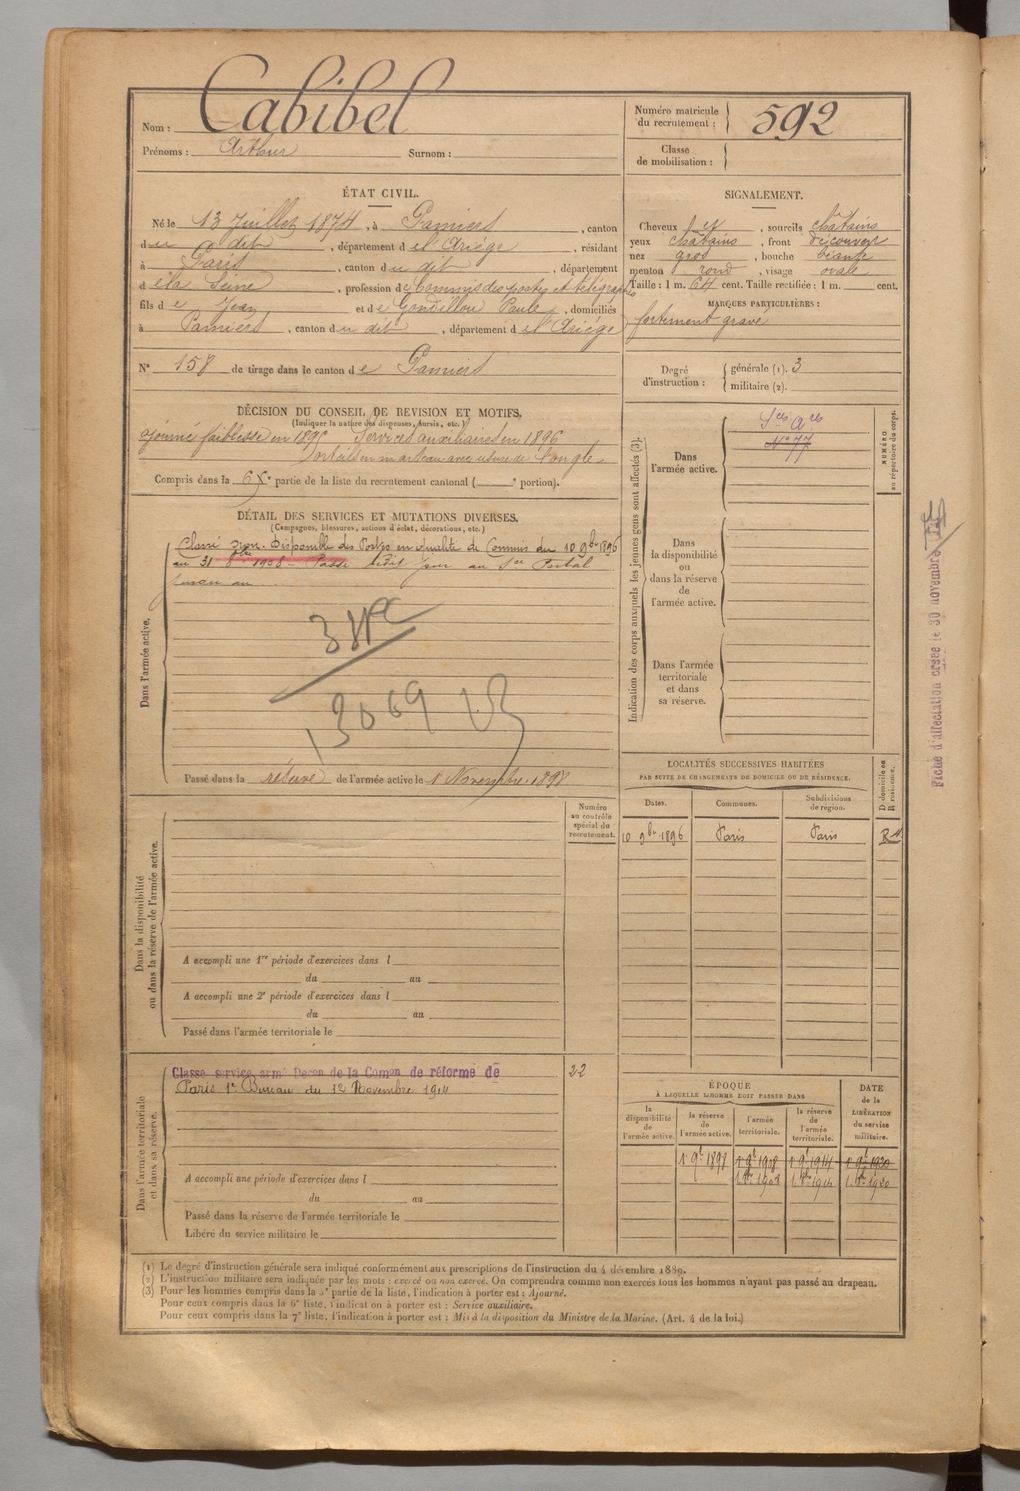 Nom : Cabibel
Prénoms : Arthur Surnom :
Numéro matricule du recrutement : 592
Classe de mobilisation :
ÉTAT CIVIL.
Né le 13 Juillet 1874, à Pamiers, canton
du dit, département de l'Ariège, résidant
à Paris, canton du dit, département
de la Seine, profession de Commis des postes et télégraphes
fils de Jean et de Gondillou Paule, domiciliés
à Pamiers, canton du dit, département de l'Ariège
N° 158 de tirage dans le canton de Pamiers
SIGNALEMENT.
Cheveux et, sourcils châtains
yeux châtains, front découvert
nez gros, bouche béante
menton rond, visage ovale
Taille : 1 m. 64 cent. Taille rectifiée : 1 m. cent.
MARQUES PARTICULIÈRES :
fortement gravé
Degré d'instruction : générale (1). 3
militaire (2).
DÉCISION DU CONSEIL DE REVISION ET MOTIFS.
(Indiquer la nature des dispenses, sursis, etc.)
ajourné faiblesse en 1895 Services auxiliaires en 1896
Orteils en marteau avec usure de l'ongle
Compris dans la 6e partie de la liste du recrutement cantonal ( e portion).
DÉTAIL DES SERVICES ET MUTATIONS DIVERSES.
(Campagnes, blessures, actions d'éclat, décorations, etc.)
Dans l'armée active.
Classé non-Disponible des Postes en qualité de Commis du 10 9bre 1896
au 31 8bre 1908 - Passé dudit jour au Sce Postal
jusqu'au
3069
Passé dans la réserve de l'armée active le 1 Novembre 1898
Indication des corps auxquels les jeunes gens sont affectés (3).
Dans l'armée active.
Sces Ares
N° 77
Dans la disponibilité ou dans la réserve de l'armée active.
Dans l'armée territoriale et dans sa réserve.
NUMÉRO au répertoire du corps.
Fiche d'affectation créée le 30 novembre
LOCALITÉS SUCCESSIVES HABITÉES
PAR SUITE DE CHANGEMENTS DE DOMICILE OU DE RÉSIDENCE.
D domicile ou R résidence.
Dates. Communes. Subdivisions de région.
10 9bre 1896 Paris Paris R
Dans la disponibilité ou dans la réserve de l'armée active.
Numéro au contrôle spécial du recrutement.
A accompli une 1re période d'exercices dans l
du au
A accompli une 2e période d'exercices dans l
du au
Passé dans l'armée territoriale le
Dans l'armée territoriale et dans sa réserve.
Classé service armé Décon de la Comon de réforme de 22
Paris 1er Bureau du 12 Novembre 1914
A accompli une période d'exercices dans l
du au
Passé dans la réserve de l'armée territoriale le
Libéré du service militaire le
ÉPOQUE
À LAQUELLE L'HOMME DOIT PASSER DANS
DATE de la LIBÉRATION du service militaire.
la disponibilité de l'armée active. la réserve de l'armée active. l'armée territoriale. la réserve de l'armée territoriale.
1 9bre 1898 1 9bre 1908 1 9bre 1914 1 9bre 1920
1 8bre 1908 1 8bre 1914 1 8bre 1920
(1) Le degré d'instruction générale sera indiqué conformément aux prescriptions de l'instruction du 4 décembre 1889.
(2) L'instruction militaire sera indiquée par les mots : exercé ou non exercé. On comprendra comme non exercés tous les hommes n'ayant pas passé au drapeau.
(3) Pour les hommes compris dans la 5e partie de la liste, l'indication à porter est : Ajourné.
Pour ceux compris dans la 6e liste, l'indication à porter est : Service auxiliaire.
Pour ceux compris dans la 7e liste, l'indication à porter est : Mis à la disposition du Ministre de la Marine. (Art. 4 de la loi.)